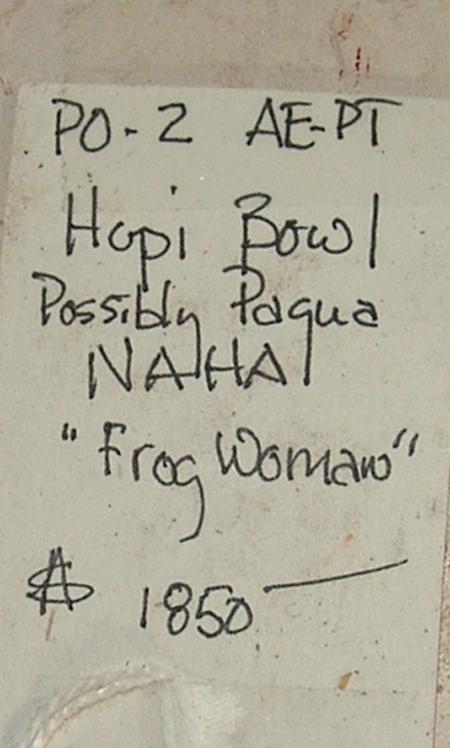 PO-2 AE-PT
Hopi Bowl
Possibly Paqua
NAHA
"Frog Woman"
$ 1850—